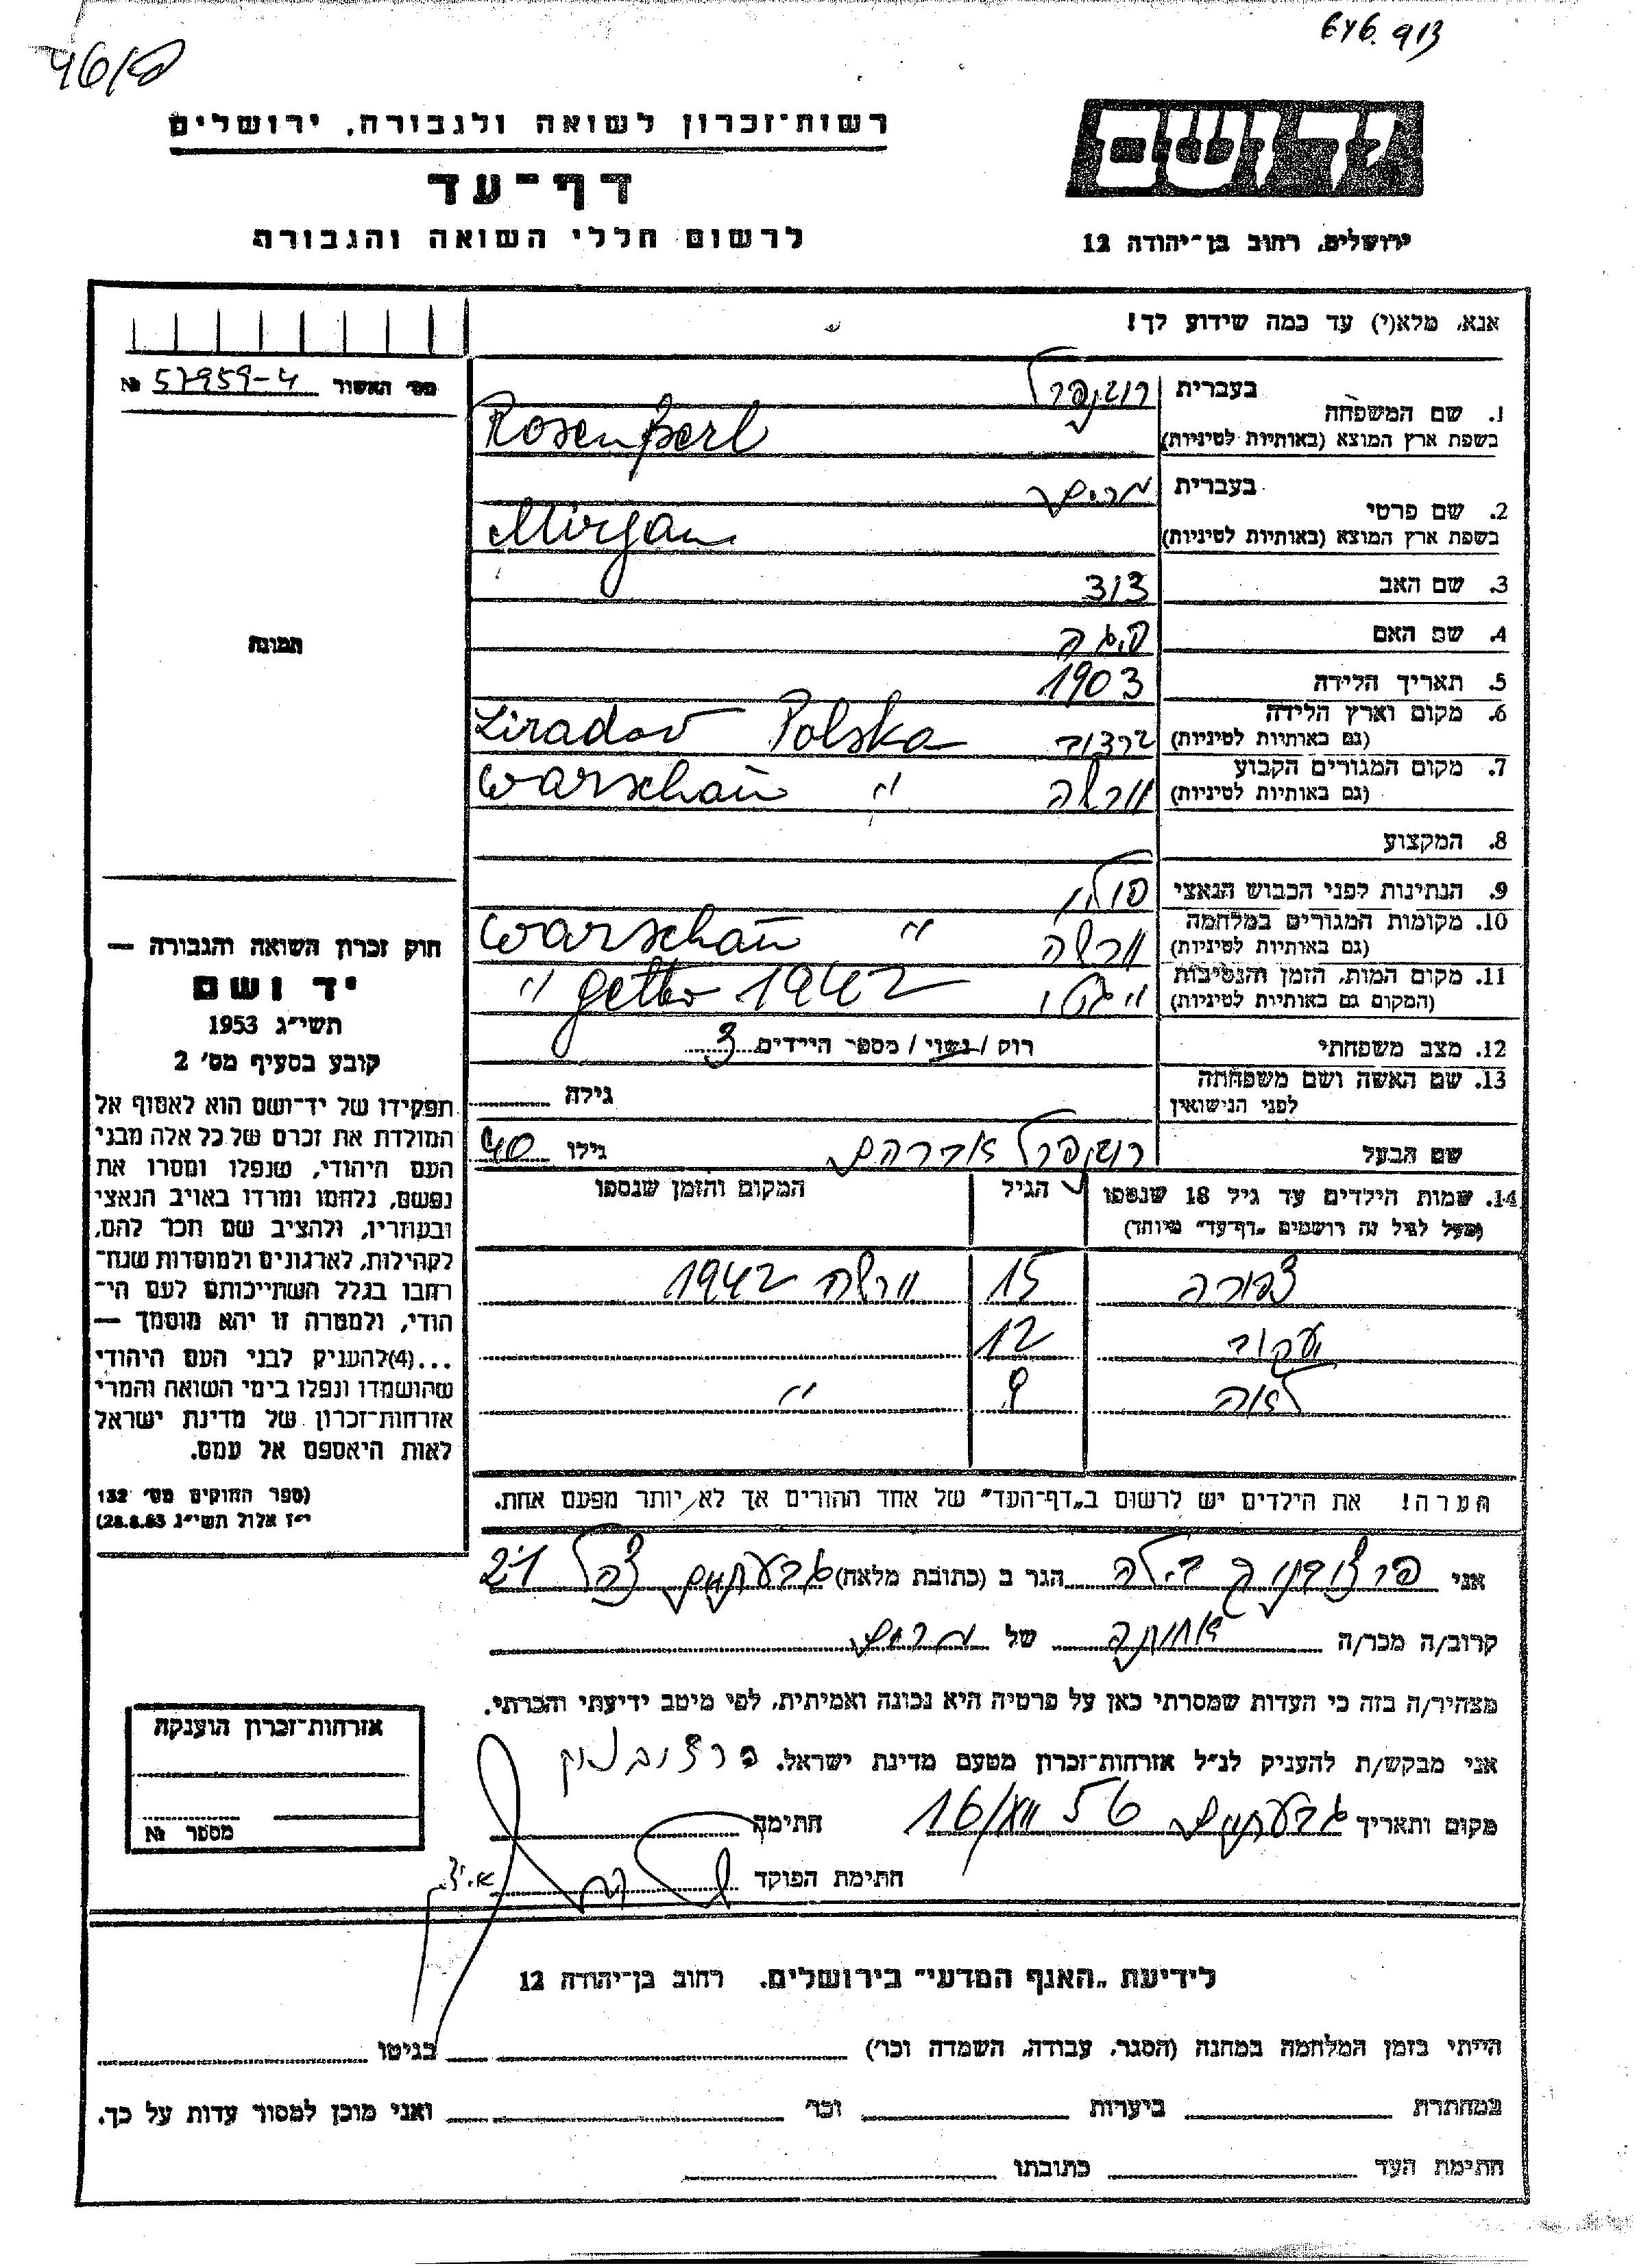 646.913
רשות־זכרון לשואה ולגבורה, ירושלים
דף־עד
לרשום חללי השואה והגבורה
יד ושם
ירושלים, רחוב בן־יהודה 12
אנא, מלא(י) עד כמה שידוע לך!
מס׳ האשור 57959-4 №
1. שם המשפחה
בעברית רוזנפרל
בשפת ארץ המוצא (באותיות לטיניות) Rosenperl
2. שם פרטי
בעברית מרים
בשפת ארץ המוצא (באותיות לטיניות) Mirjam
3. שם האב דוד
4. שם האם
5. תאריך הלידה 1903
6. מקום וארץ הלידה
(גם באותיות לטיניות) Ziradov Polska
7. מקום המגורים הקבוע
(גם באותיות לטיניות) ורשה " Warschau
8. המקצוע
9. הנתינות לפני הכבוש הנאצי פולין
10. מקומות המגורים במלחמה
(גם באותיות לטיניות) ורשה " Warschau
11. מקום המות, הזמן והנסיבות
(המקום גם באותיות לטיניות) " גטו 1942 getto "
12. מצב משפחתי רוק / נשוי / מספר הילדים 3
13. שם האשה ושם משפחתה
לפני הנישואין גילה
שם הבעל רוזנפרל אברהם גילו 40
14. שמות הילדים עד גיל 18 שנספו הגיל המקום והזמן שנספו
(מעל לגיל זה רושמים „דף־עד" מיוחד)
צפורה 15 ורשה 1942
יעקוב 12
לאה 9 "
הערה! את הילדים יש לרשום ב„דף־העד" של אחד ההורים אך לא יותר מפעם אחת.
תמונה
חוק זכרון השואה והגבורה —
יד ושם
תשי״ג 1953
קובע בסעיף מס׳ 2
תפקידו של יד־ושם הוא לאסוף אל
המולדת את זכרם של כל אלה מבני
העם היהודי, שנפלו ומסרו את
נפשם, נלחמו ומרדו באויב הנאצי
ובעוזריו, ולהציב שם וזכר להם,
לקהילות, לארגונים ולמוסדות שנח־
רבו בגלל השתייכותם לעם הי־
הודי, ולמטרה זו יהא מוסמך —
...(4)להעניק לבני העם היהודי
שהושמדו ונפלו בימי השואה והמרי
אזרחות־זכרון של מדינת ישראל
לאות היאספם אל עמם.
(ספר החוקים מס׳ 132
י״ז אלול תשי״ג 28.8.53)
אני בילה הגר ב (כתובת מלאה) גבעתיים צהל 21
קרוב/ה מכר/ה אחותה של מרים
מצהיר/ה בזה כי העדות שמסרתי כאן על פרטיה היא נכונה ואמיתית, לפי מיטב ידיעתי והכרתי.
אני מבקש/ת להעניק לנ״ל אזרחות־זכרון מטעם מדינת ישראל.
מקום ותאריך גבעתיים 16/ 56 חתימה
חתימת הפוקד
אזרחות־זכרון הוענקה
מספר №
לידיעת „האגף המדעי" בירושלים. רחוב בן־יהודה 12
הייתי בזמן המלחמה במחנה (הסגר, עבודה, השמדה וכו׳) בגיטו
במחתרת ביערות וכו׳ ואני מוכן למסור עדות על כך.
חתימת העד כתובתו